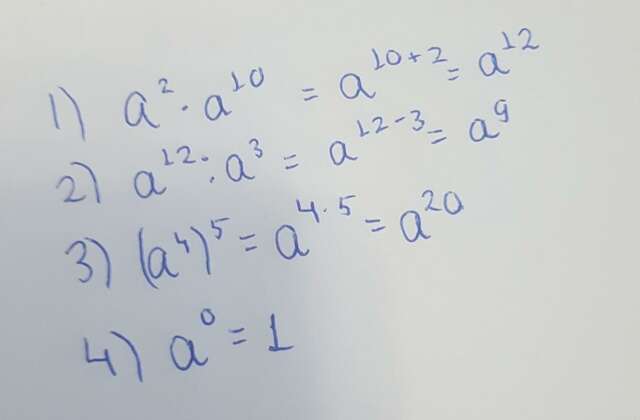 1) a² · a¹⁰ = a¹⁰⁺² = a¹²
2) a¹² : a³ = a¹²⁻³ = a⁹
3) (a⁴)⁵ = a⁴·⁵ = a²⁰
4) a⁰ = 1